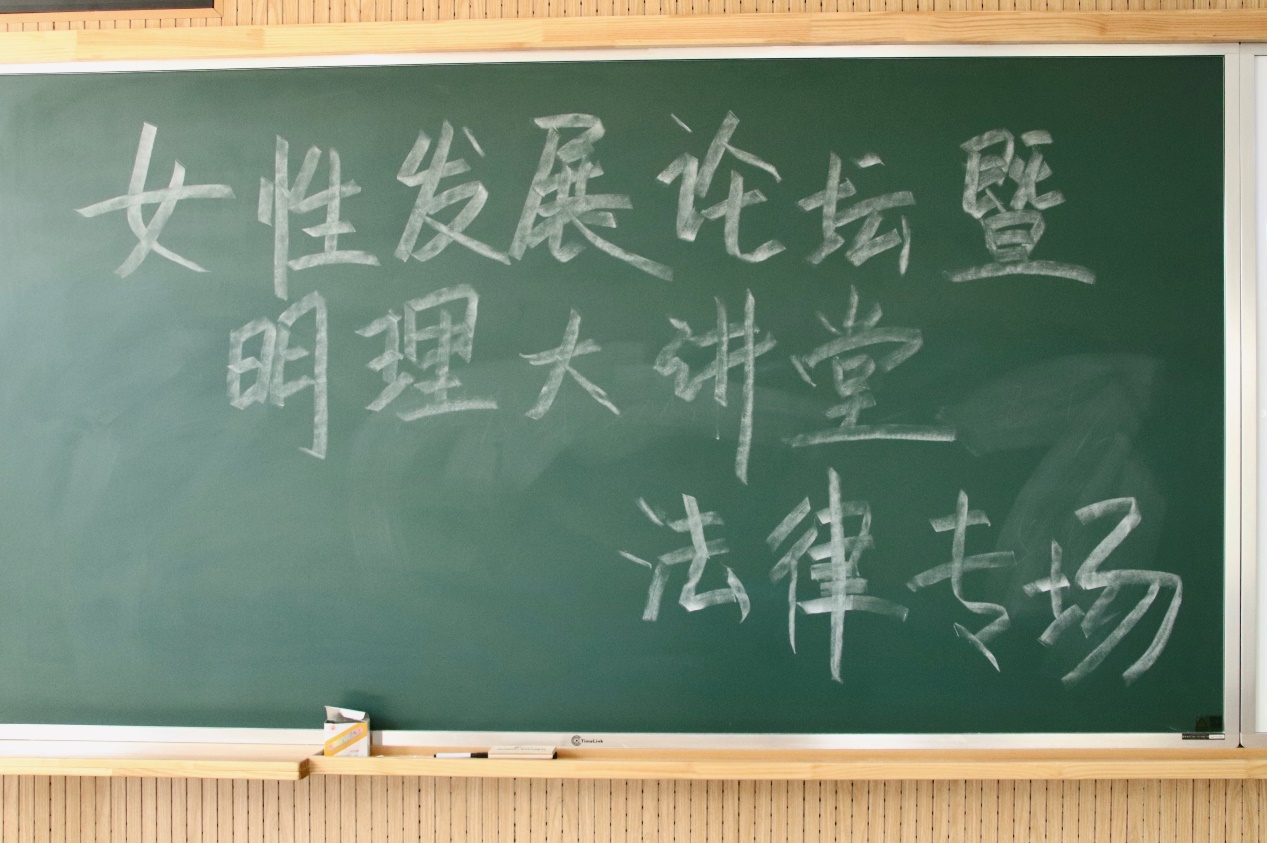 女性发展论坛暨
明理大讲堂
法律专场
TimeLink